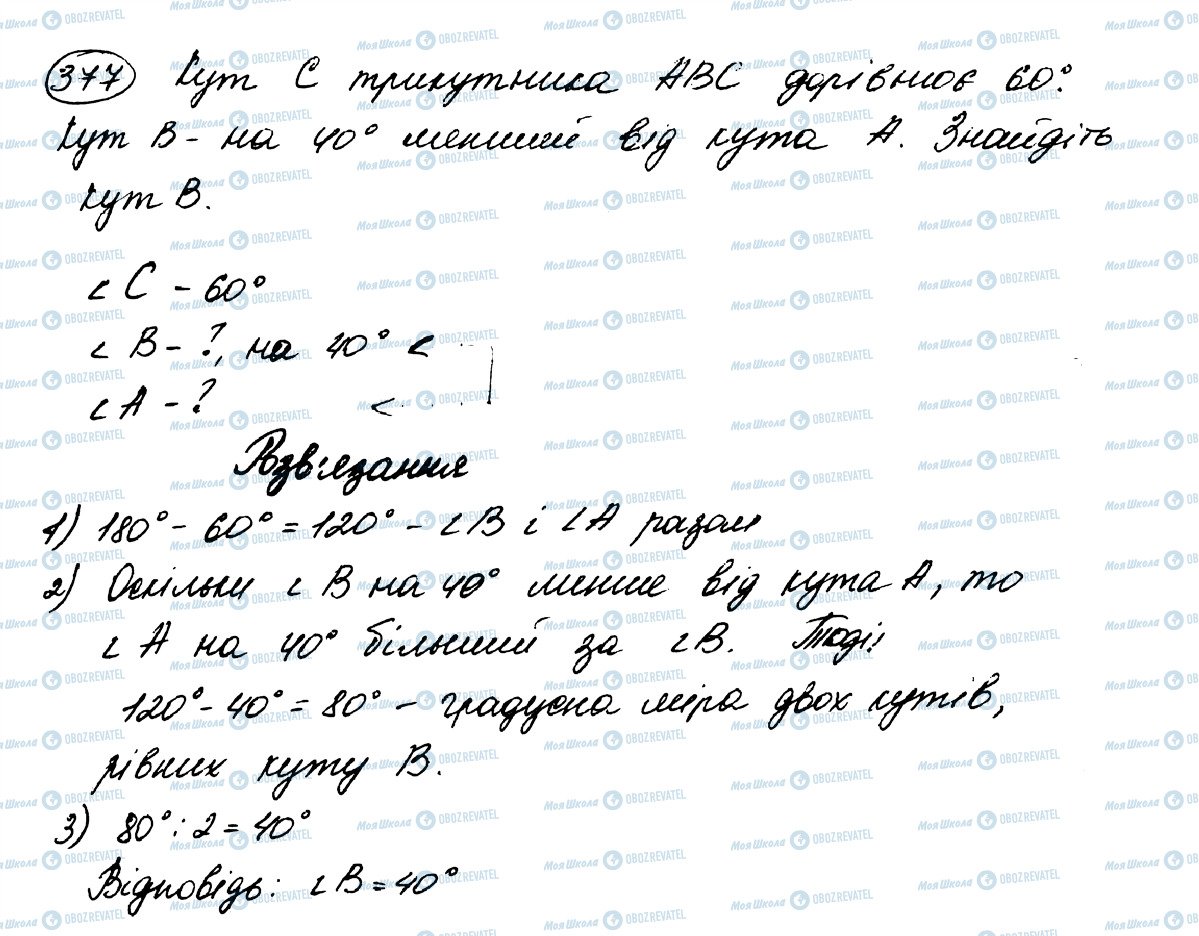 377 Кут C трикутника ABC дорівнює 60°.
Кут B - на 40° менший від кута A. Знайдіть
кут B.
∠C - 60°
∠B - ?, на 40° <
∠A - ? <
Розв'язання
1) 180° - 60° = 120° - ∠B і ∠A разом
2) Оскільки ∠B на 40° менше від кута A, то
∠A на 40° більший за ∠B. Тоді:
120° - 40° = 80° - градусна міра двох кутів,
рівних куту B.
3) 80° : 2 = 40°
Відповідь: ∠B = 40°